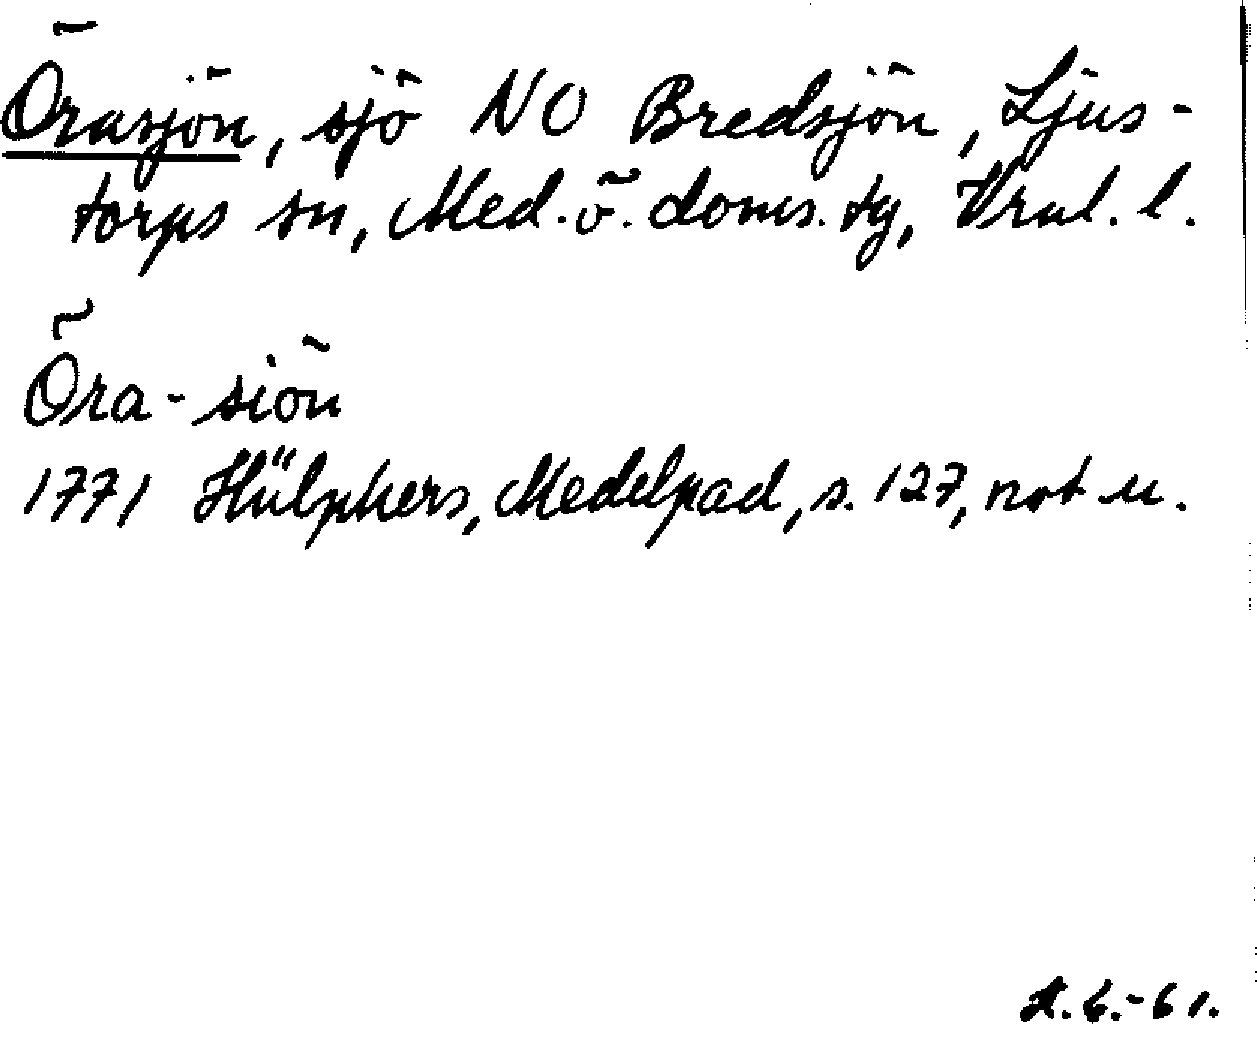 Örasjön, sjö NO Bredsjön, Ljus-
torps sn, Med. ö. doms. tg, Vrnl. l.
Öra-siön
1771 Hülphers, Medelpad, s. 127, not u.
A. 6.-61.